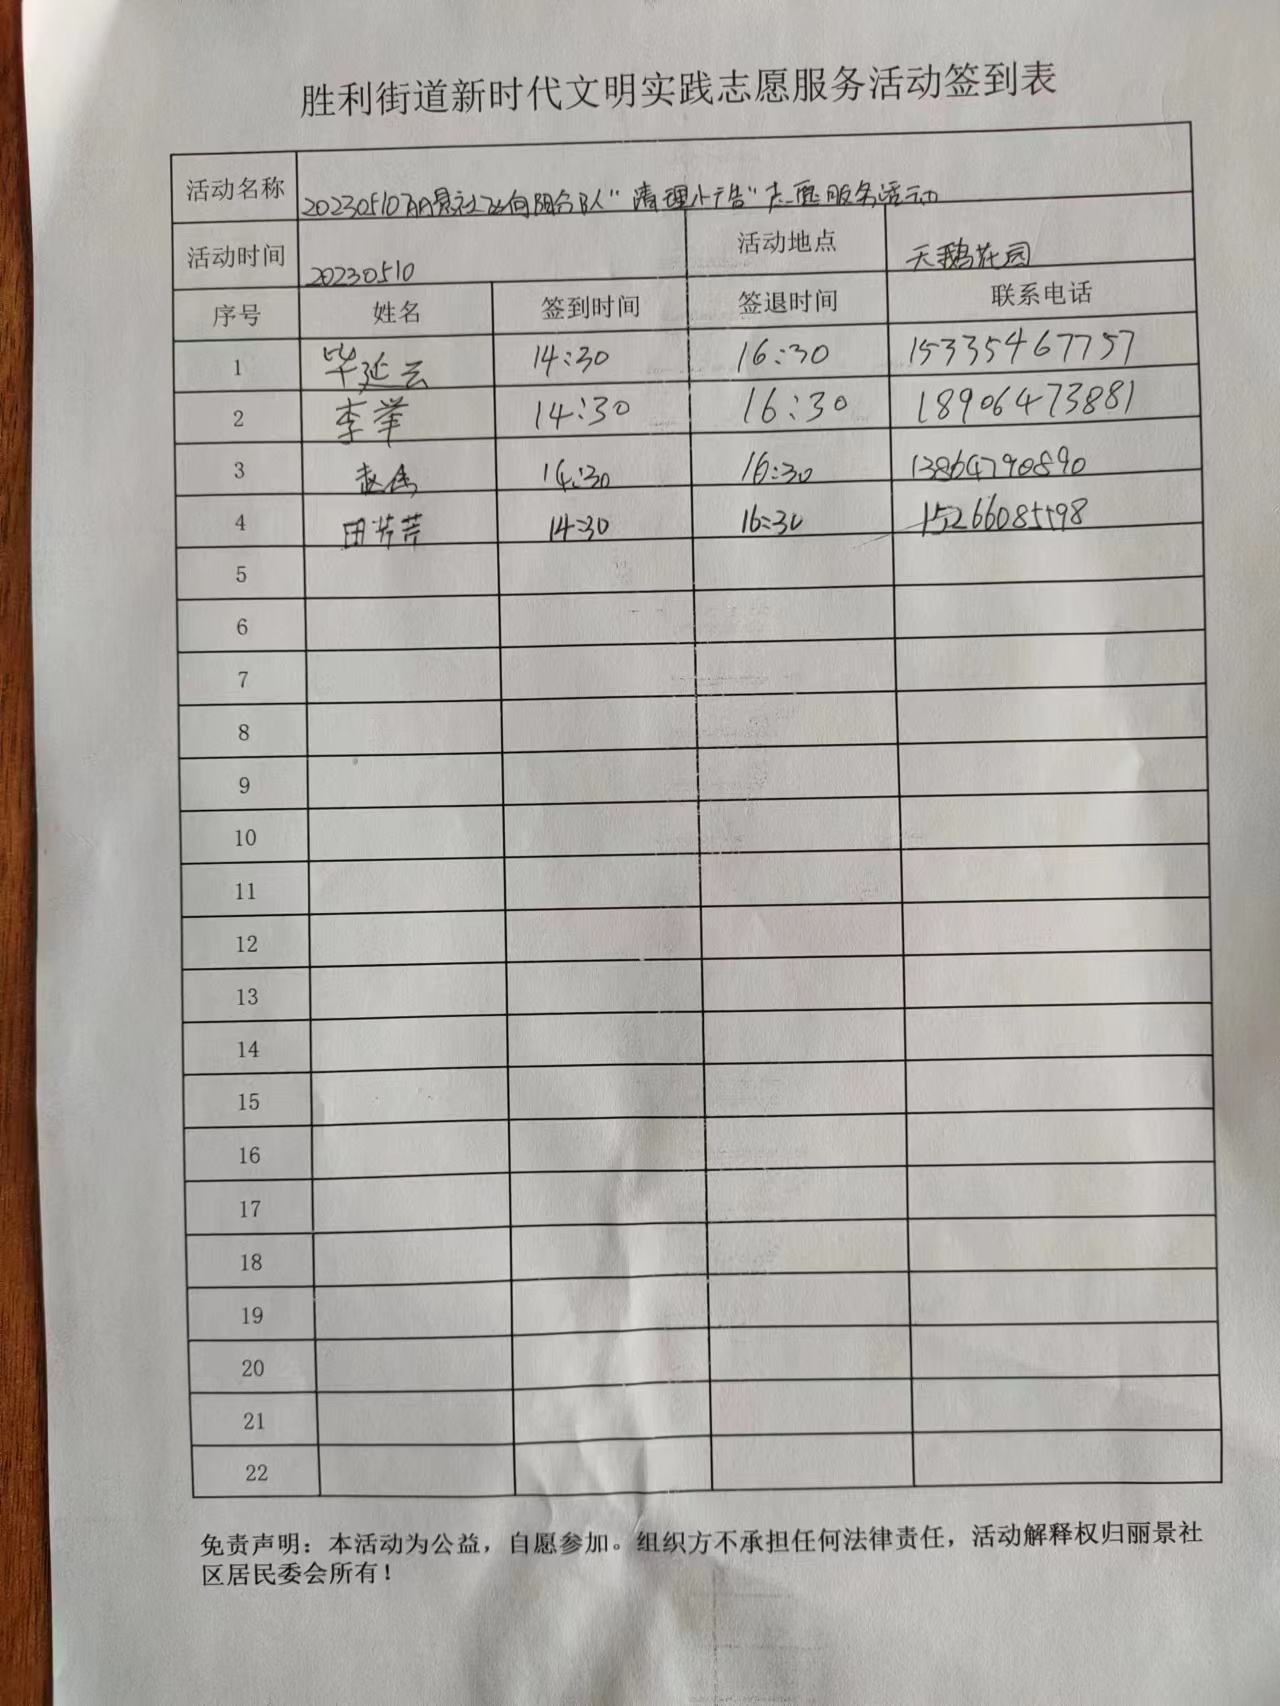 胜利街道新时代文明实践志愿服务活动签到表
活动名称 20230510丽景社区向阳分队“清理小广告”志愿服务活动
活动时间 20230510 活动地点 天鹅花园
序号 姓名 签到时间 签退时间 联系电话
1 毕延云 14:30 16:30 15335467757
2 李举 14:30 16:30 18906473881
3 赵 14:30 16:30 13864790890
4 田芳芳 14:30 16:30 15266085598
5
6
7
8
9
10
11
12
13
14
15
16
17
18
19
20
21
22
免责声明：本活动为公益，自愿参加。组织方不承担任何法律责任，活动解释权归丽景社
区居民委会所有！